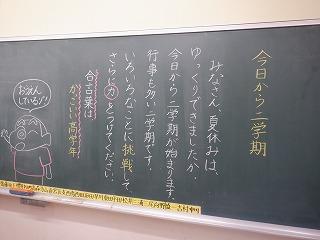 今日から二学期
みなさん、夏休みは、
ゆっくりできましたか。
今日から二学期が始まります。
行事も多い二学期です。
いろいろなことに挑戦して、
さらに力をつけてください。
合言葉は
かっこいい高学年
おうえん
しているゾ